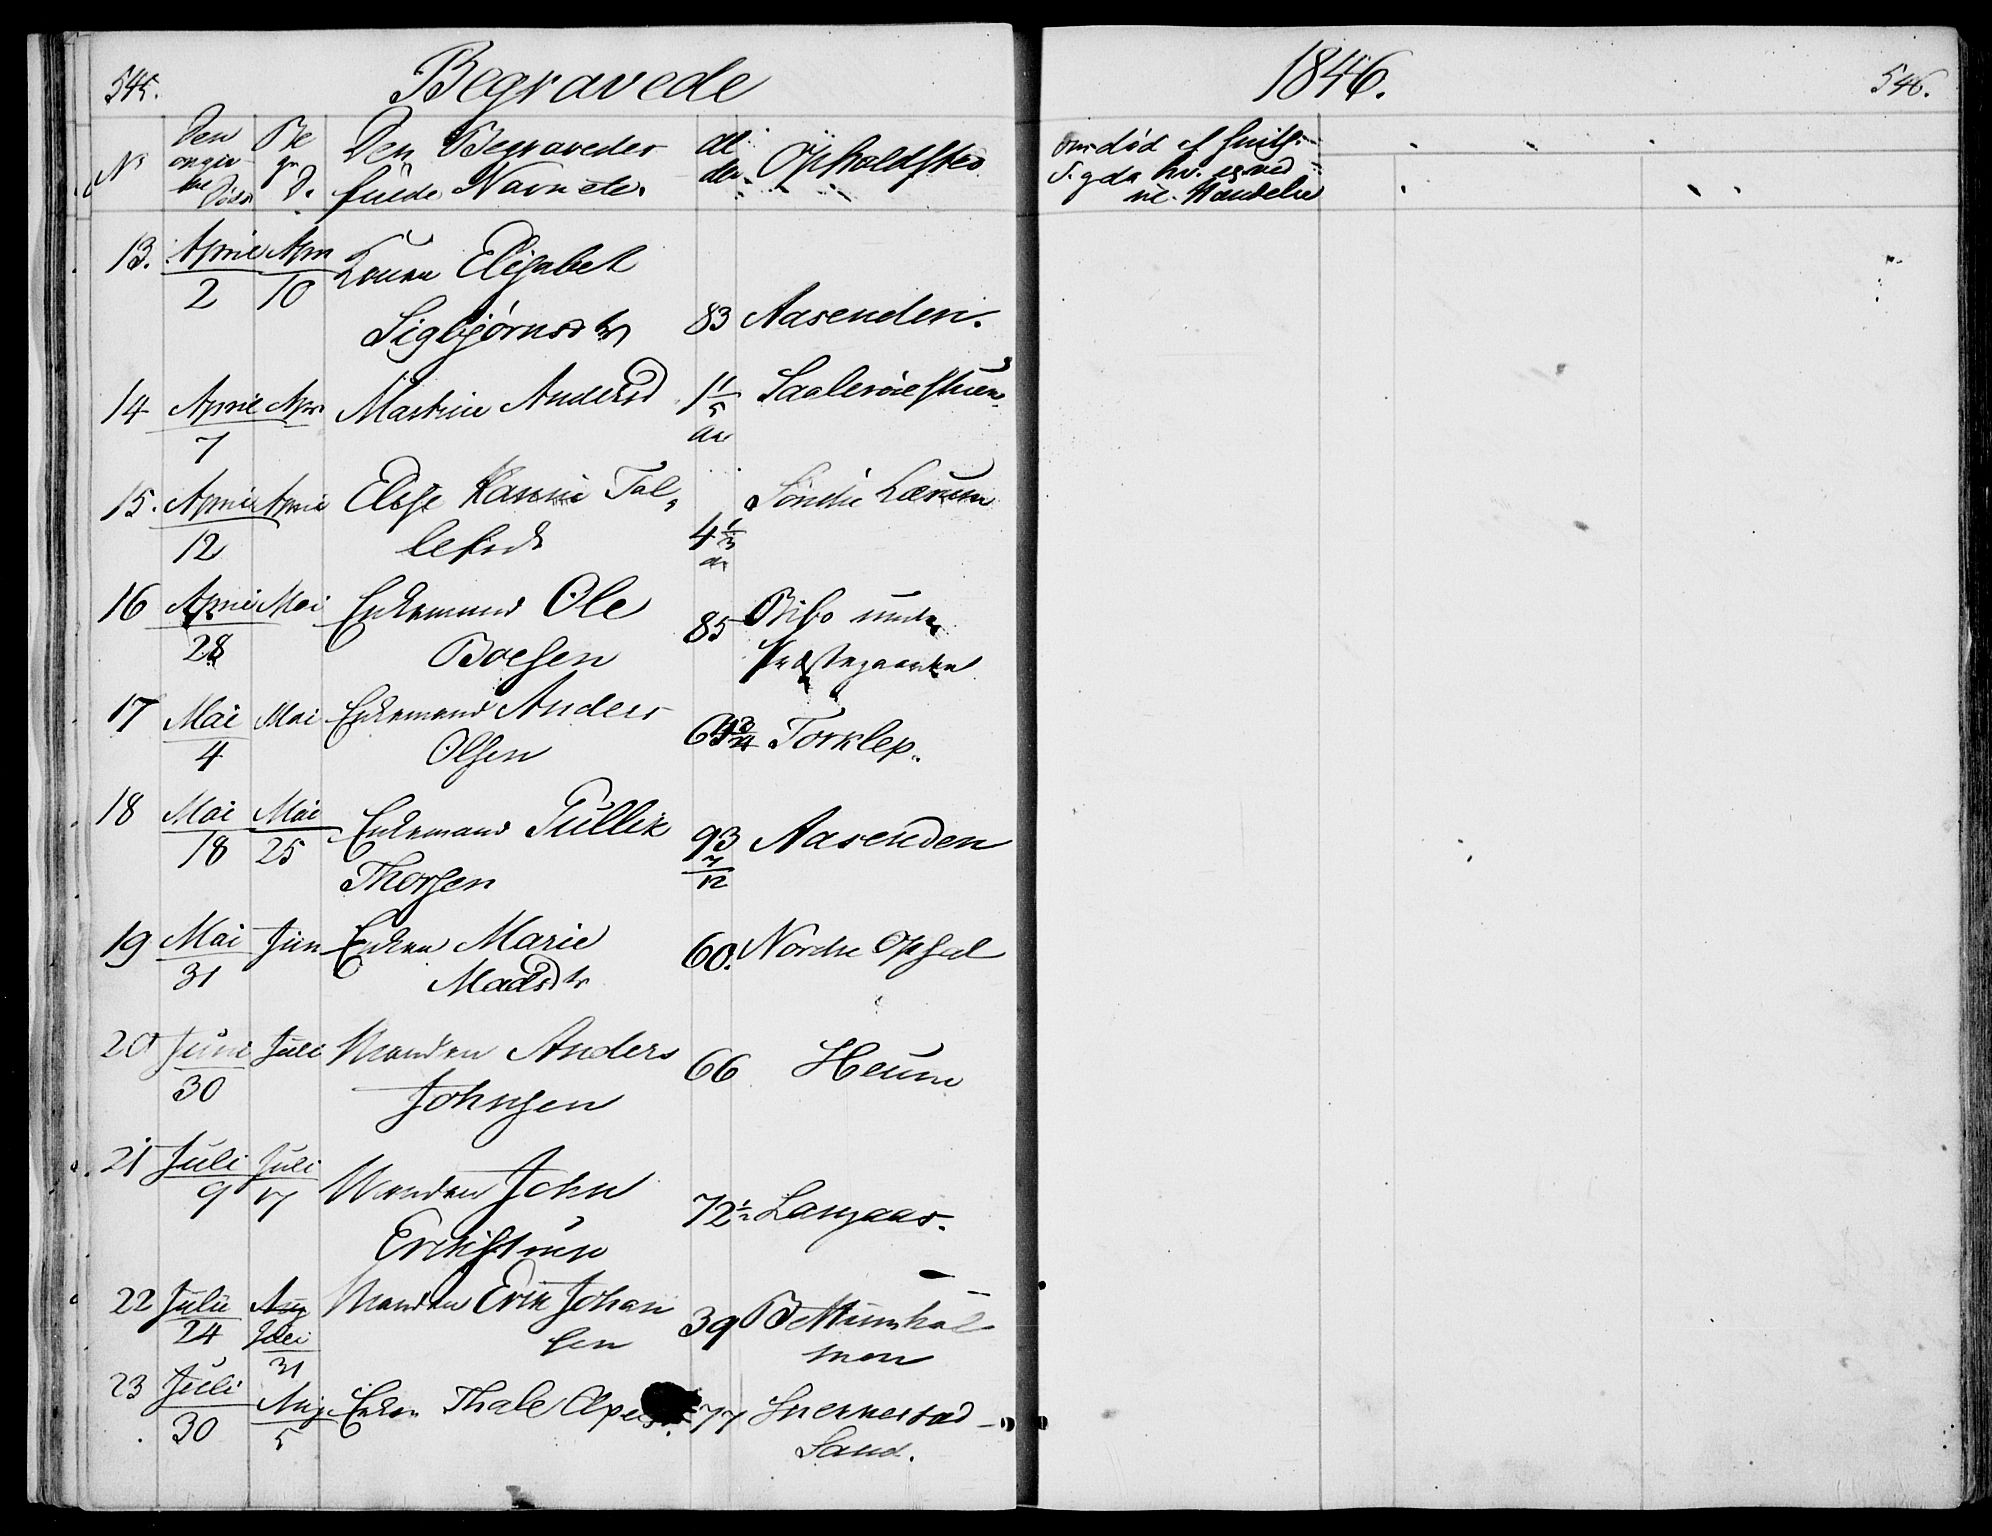 545. Begravede
1846. 546.
No Den angiv ne Døds Be gr D. Den Begravedes fulde Navn etc. Al der Opholdsted
Om død af
13. April 2 Apr 10 Konen Elisabet
Sigbjørnsdtr 83 Aasenden.
14 April 7 Apr Martine Andersd 1 1/5 Aar
15. April 12 April Else Karine Tol-
lefsd 4 1/3 Aar Søndre Lærum
16 April 28 Mai Enkemand Ole
Boesen 85 under
Præstegaarden
17 Mai 4 Mai Enkemand Anders
Olsen Torklep.
18 Mai 18 Mai 25 Enkemand Tullik
Thorsen 93 7/12 Aasenden
19 Mai 31 Jun Enken Marie
Madsdtr 60. Nordre Opsal
20 Juni 30 Juli Manden Anders
Johnsen 66 Heum
21 Juli 9 Juli 17 Manden John
72 1/2 Langaas.
22 Julii 24 Aug Juli 31 Manden Erik Johan
sen 39 Bettumhol
men
23 Juli 30 Aug 5 Enken Thale 77 Snekkestad
Sand.